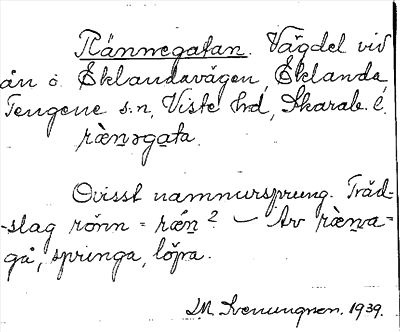 Rännegatan. Vägdel vid
ån o. Eklandavägen, Eklanda
Tengene s:n, Viste hd, Skarab. l.
ræ̀nəgata.
Ovisst namnursprung. Träd-
-slag rönn = 2 – Av
gå, springa, löpa.
I.M. Svenungson. 1939.